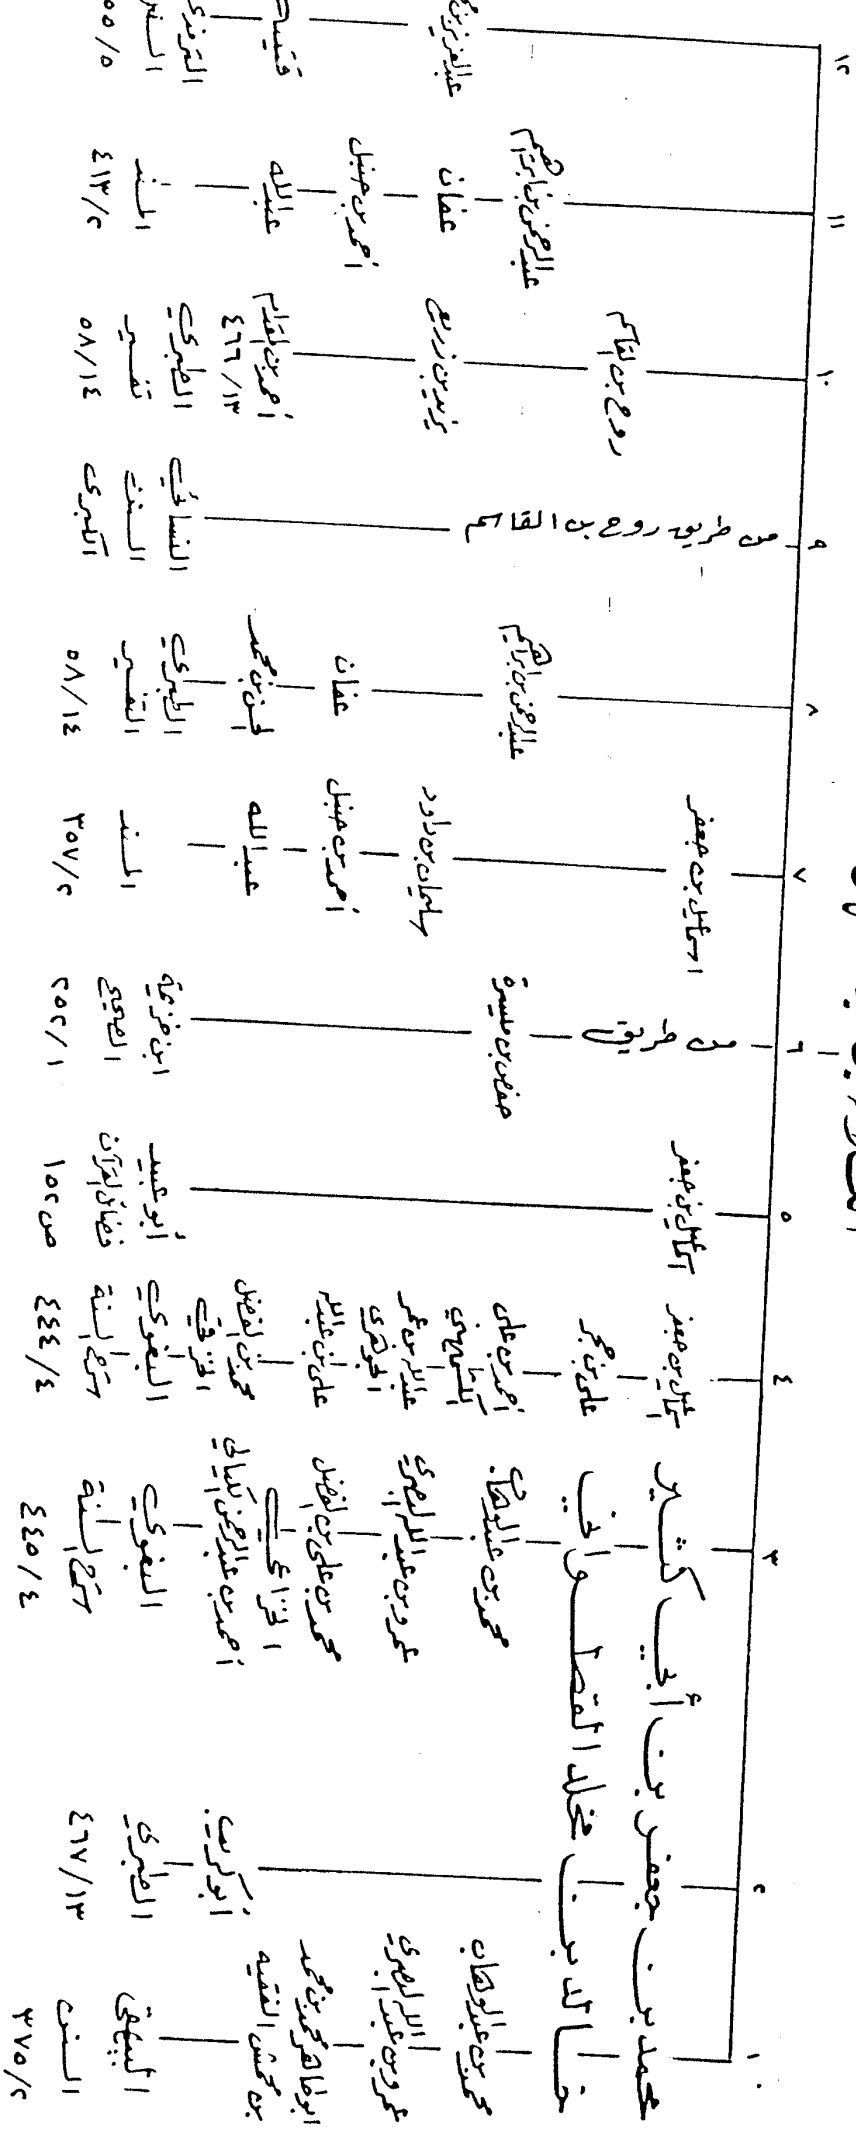 ١
محمد بن جعفر بن أبي كثير
خالد بن مخلد القطواني
محمد بن عبد الوهاب
عمرو بن عبد الله البصري
ابو طاهر محمد بن محمد
بن محمش الفقيه
البيهقي
السنن
٣٧٥/٢
٢
أبو كريب
الطبري
٤٦٧/١٣
٣
محمد بن عبد الوهاب
عمرو بن عبد الله البصري
محمد بن علي بن الفضل
الخزاعي
أحمد بن عبد الرحمن الكيالي
البغوي
شرح السنة
٤٤٥/٤
٤
اسماعيل بن جعفر
علي بن حجر
أحمد بن علي
الكشميهني
عبد الله بن عمر
الجوهري
علي بن عبد الله
محمد بن الفضل
الخرقي
البغوي
شرح السنة
٤٤٤/٤
٥
اسماعيل بن جعفر
أبو عبيد
فضائل القرآن
ص ١٥٢
٦
من طريق
حفص بن ميسرة
ابن خزيمة
الصحيح
٢٥٢/١
٧
اسماعيل بن جعفر
سليمان بن داود
أحمد بن حنبل
عبد الله
المسند
٣٥٧/٢
٨
عبد الرحمن بن ابراهيم
عفان
الحسن بن محمد
الطبري
التفسير
٥٨/١٤
٩
من طريق روح بن القاسم
النسائي
السنن
الكبرى
١٠
روح بن القاسم
يزيد بن زريع
أحمد بن المقدام
٤٦٦/١٣
الطبري
تفسير
٥٨/١٤
١١
عبد الرحمن بن ابراهيم
عفان
أحمد بن حنبل
عبد الله
المسند
٤١٣/٢
١٢
عبد العزيز بن
قتيبة
الترمذي
السنن